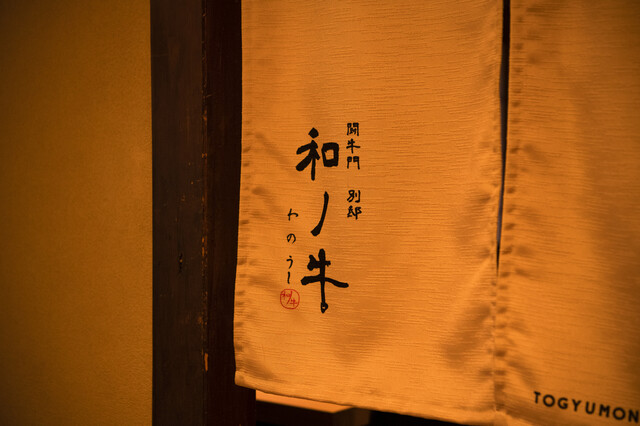 闘牛門 別邸
和ノ牛
わのうし
和ノ牛
TOGYUMON